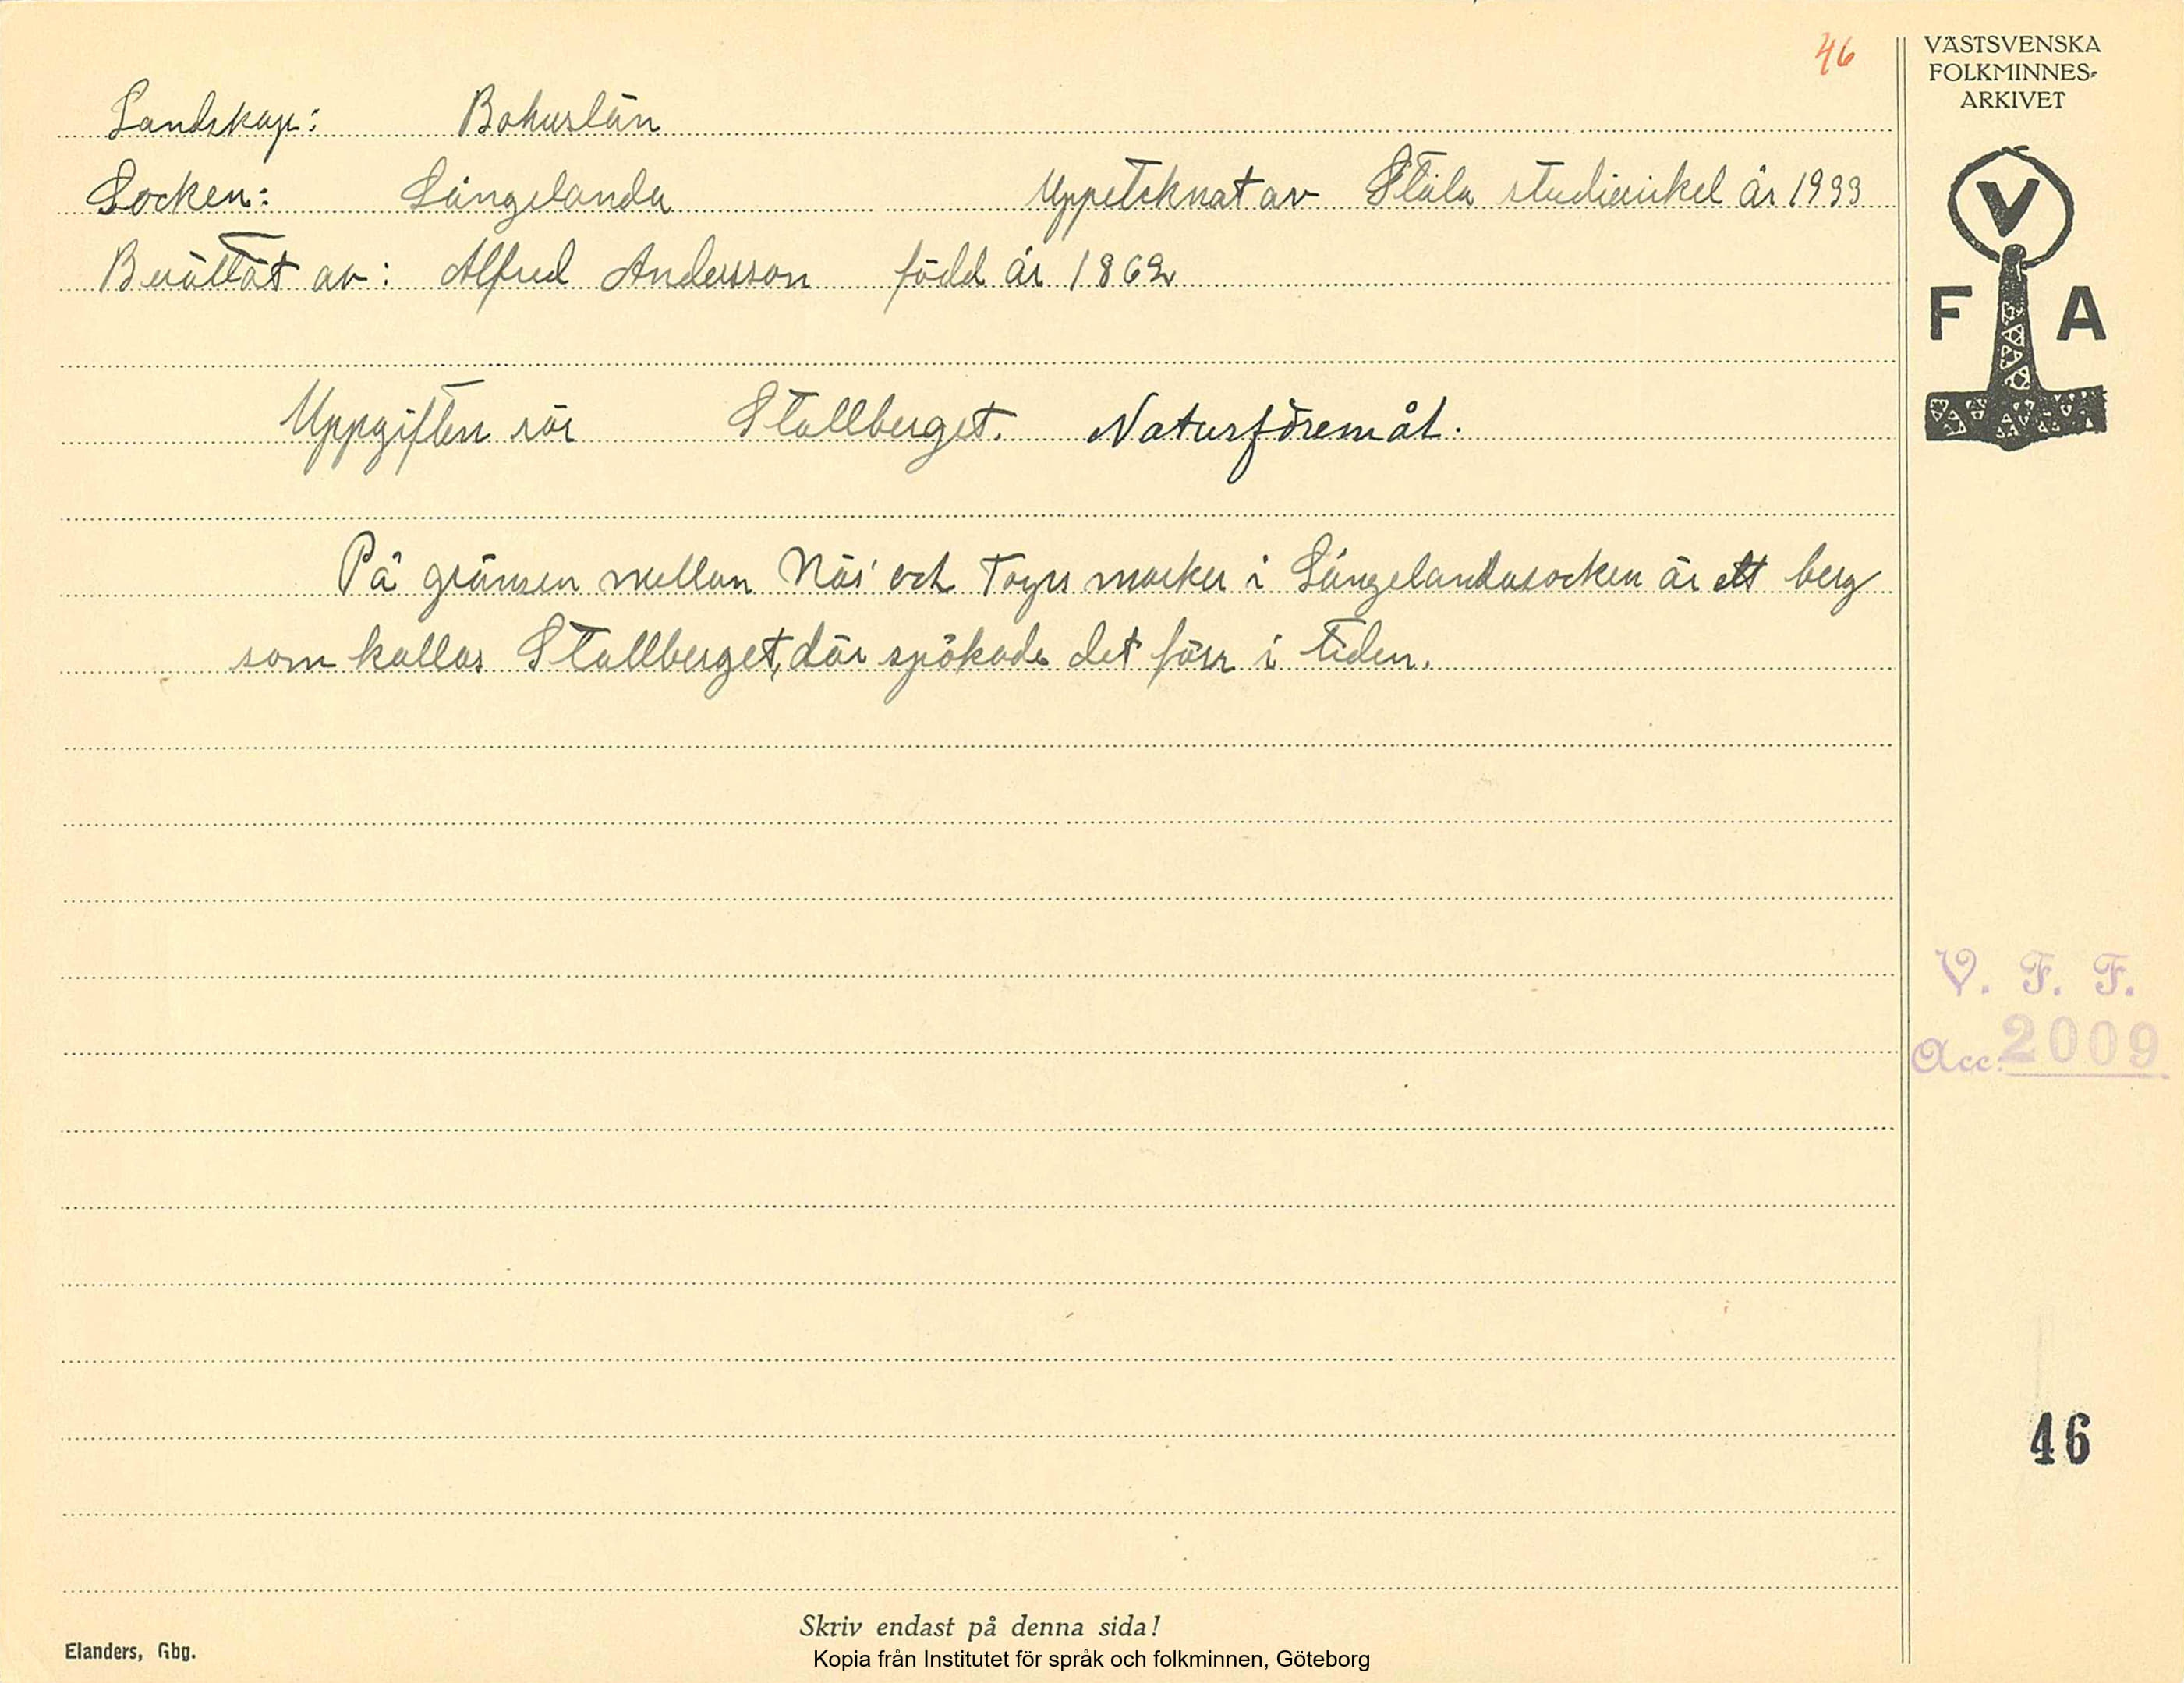 46
VÄSTSVENSKA
FOLKMINNES-
ARKIVET
Landskap: Bohuslän
Socken: Långelanda Uppetcknat av Stala studiecirkel år 1933
Berättat av: Alfred Andersson född år 1862
V
F A
Uppgiften rör Stallberget. Naturföremål.
På gränsen mellan Näs och Toges marker i Långelandasocken är ett berg
som kallas Stallberget, där spökade det förr i tiden.
V. F. F.
Acc. 2009
46
Skriv endast på denna sida!
Elanders, Gbg.
Kopia från Institutet för språk och folkminnen, Göteborg